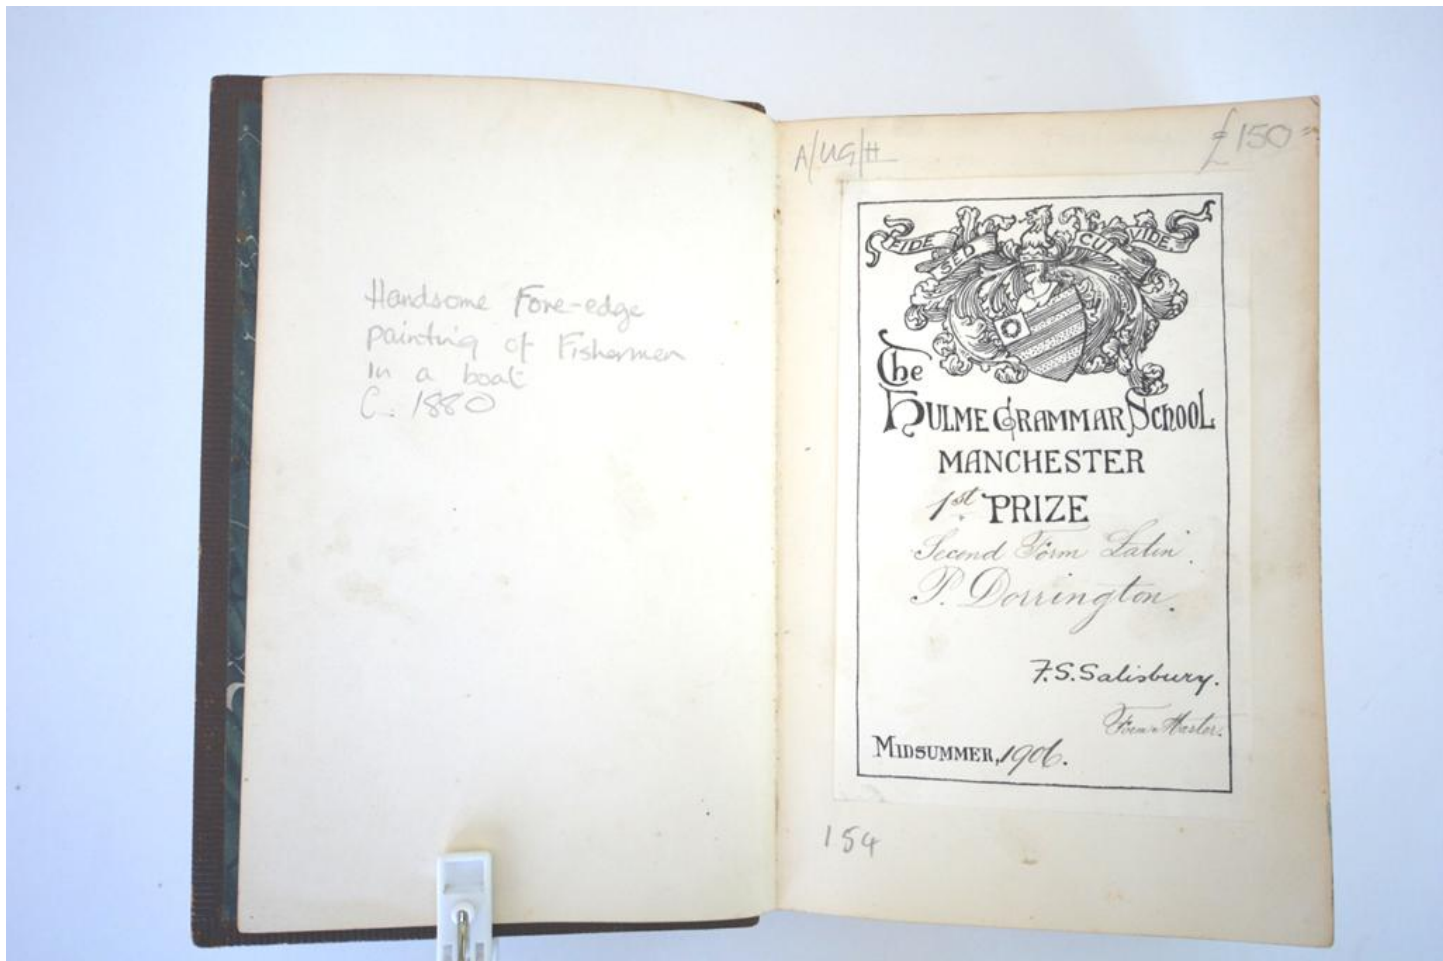 Handsome Fore-edge
painting of Fishermen
in a boat
C. 1880
A/UG/H
£150=
FIDE SED CUI VIDE
The
Hulme Grammar School
MANCHESTER
1st PRIZE
Second Form Latin.
P. Dorrington.
F.S. Salisbury.
Form Master.
MIDSUMMER, 1906.
154